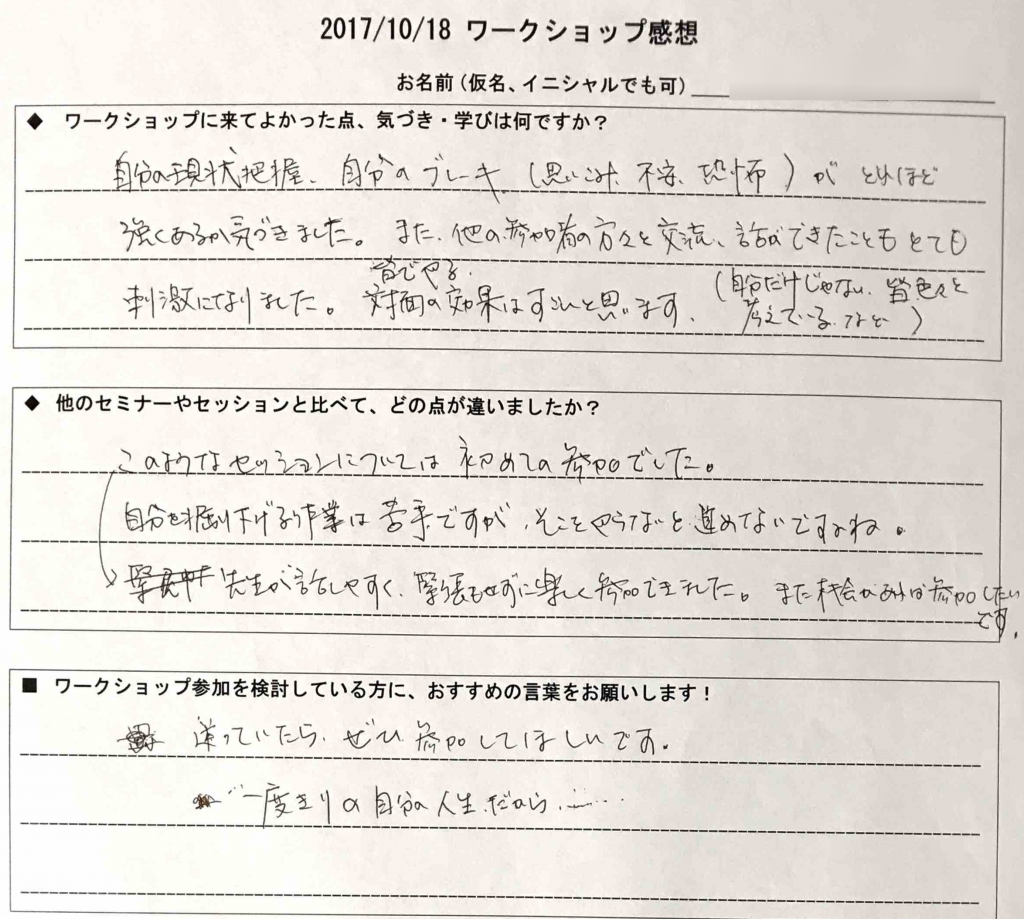 2017/10/18 ワークショップ感想
お名前（仮名、イニシャルでも可）
◆ ワークショップに来てよかった点、気づき・学びは何ですか？
自分の現状把握、自分のブレーキ（思いこみ、不安、恐怖）が どれほど
強くあるか気づきました。また、他の参加者の方々と交流、話ができたことも とても
刺激になりました。皆でやる、対面の効果はすごいと思います。（自分だけじゃない、皆色々と
考えている、など）
◆ 他のセミナーやセッションと比べて、どの点が違いましたか？
このようなセッションについては 初めての参加でした。
自分を掘り下げる作業は苦手ですが、そこをやらないと進めないですよね。
先生が話しやすく、緊張もせずに楽しく参加できました。また機会があれば参加したい
です。
■ ワークショップ参加を検討している方に、おすすめの言葉をお願いします！
迷っていたら、ぜひ参加してほしいです。
一度きりの自分の人生だから、……